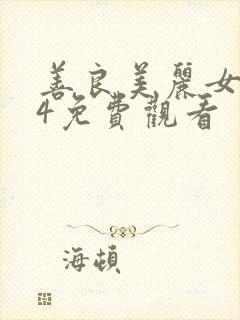 善良美麗女
4免費觀看
海頓